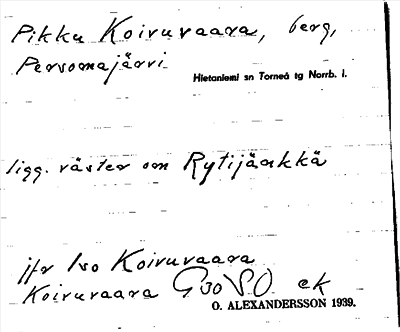 Pikku Koivuvaara, berg,
Persomajärvi
Hietaniemi sn Torneå tg Norrb. l.
ligg. väster om Rytijänkkä
jfr Iso Koivuvaara
Koivuvaara G30 SO ek
O. ALEXANDERSSON 1939.